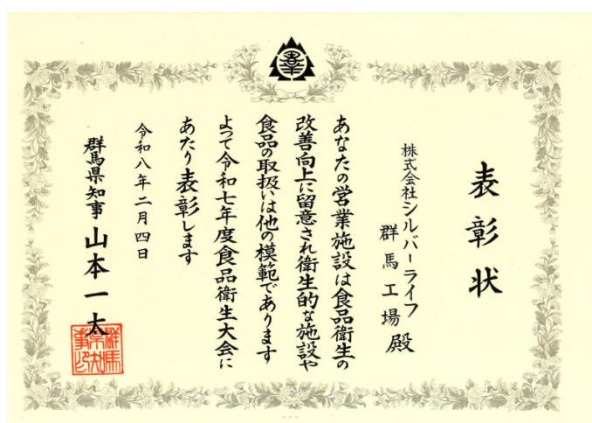 表彰状
株式会社シルバーライフ
群馬工場殿
あなたの営業施設は食品衛生の
改善向上に留意され衛生的な施設や
食品の取扱いは他の模範であります
よって令和七年度食品衛生大会に
あたり表彰します
令和八年二月四日
群馬県知事山本一太